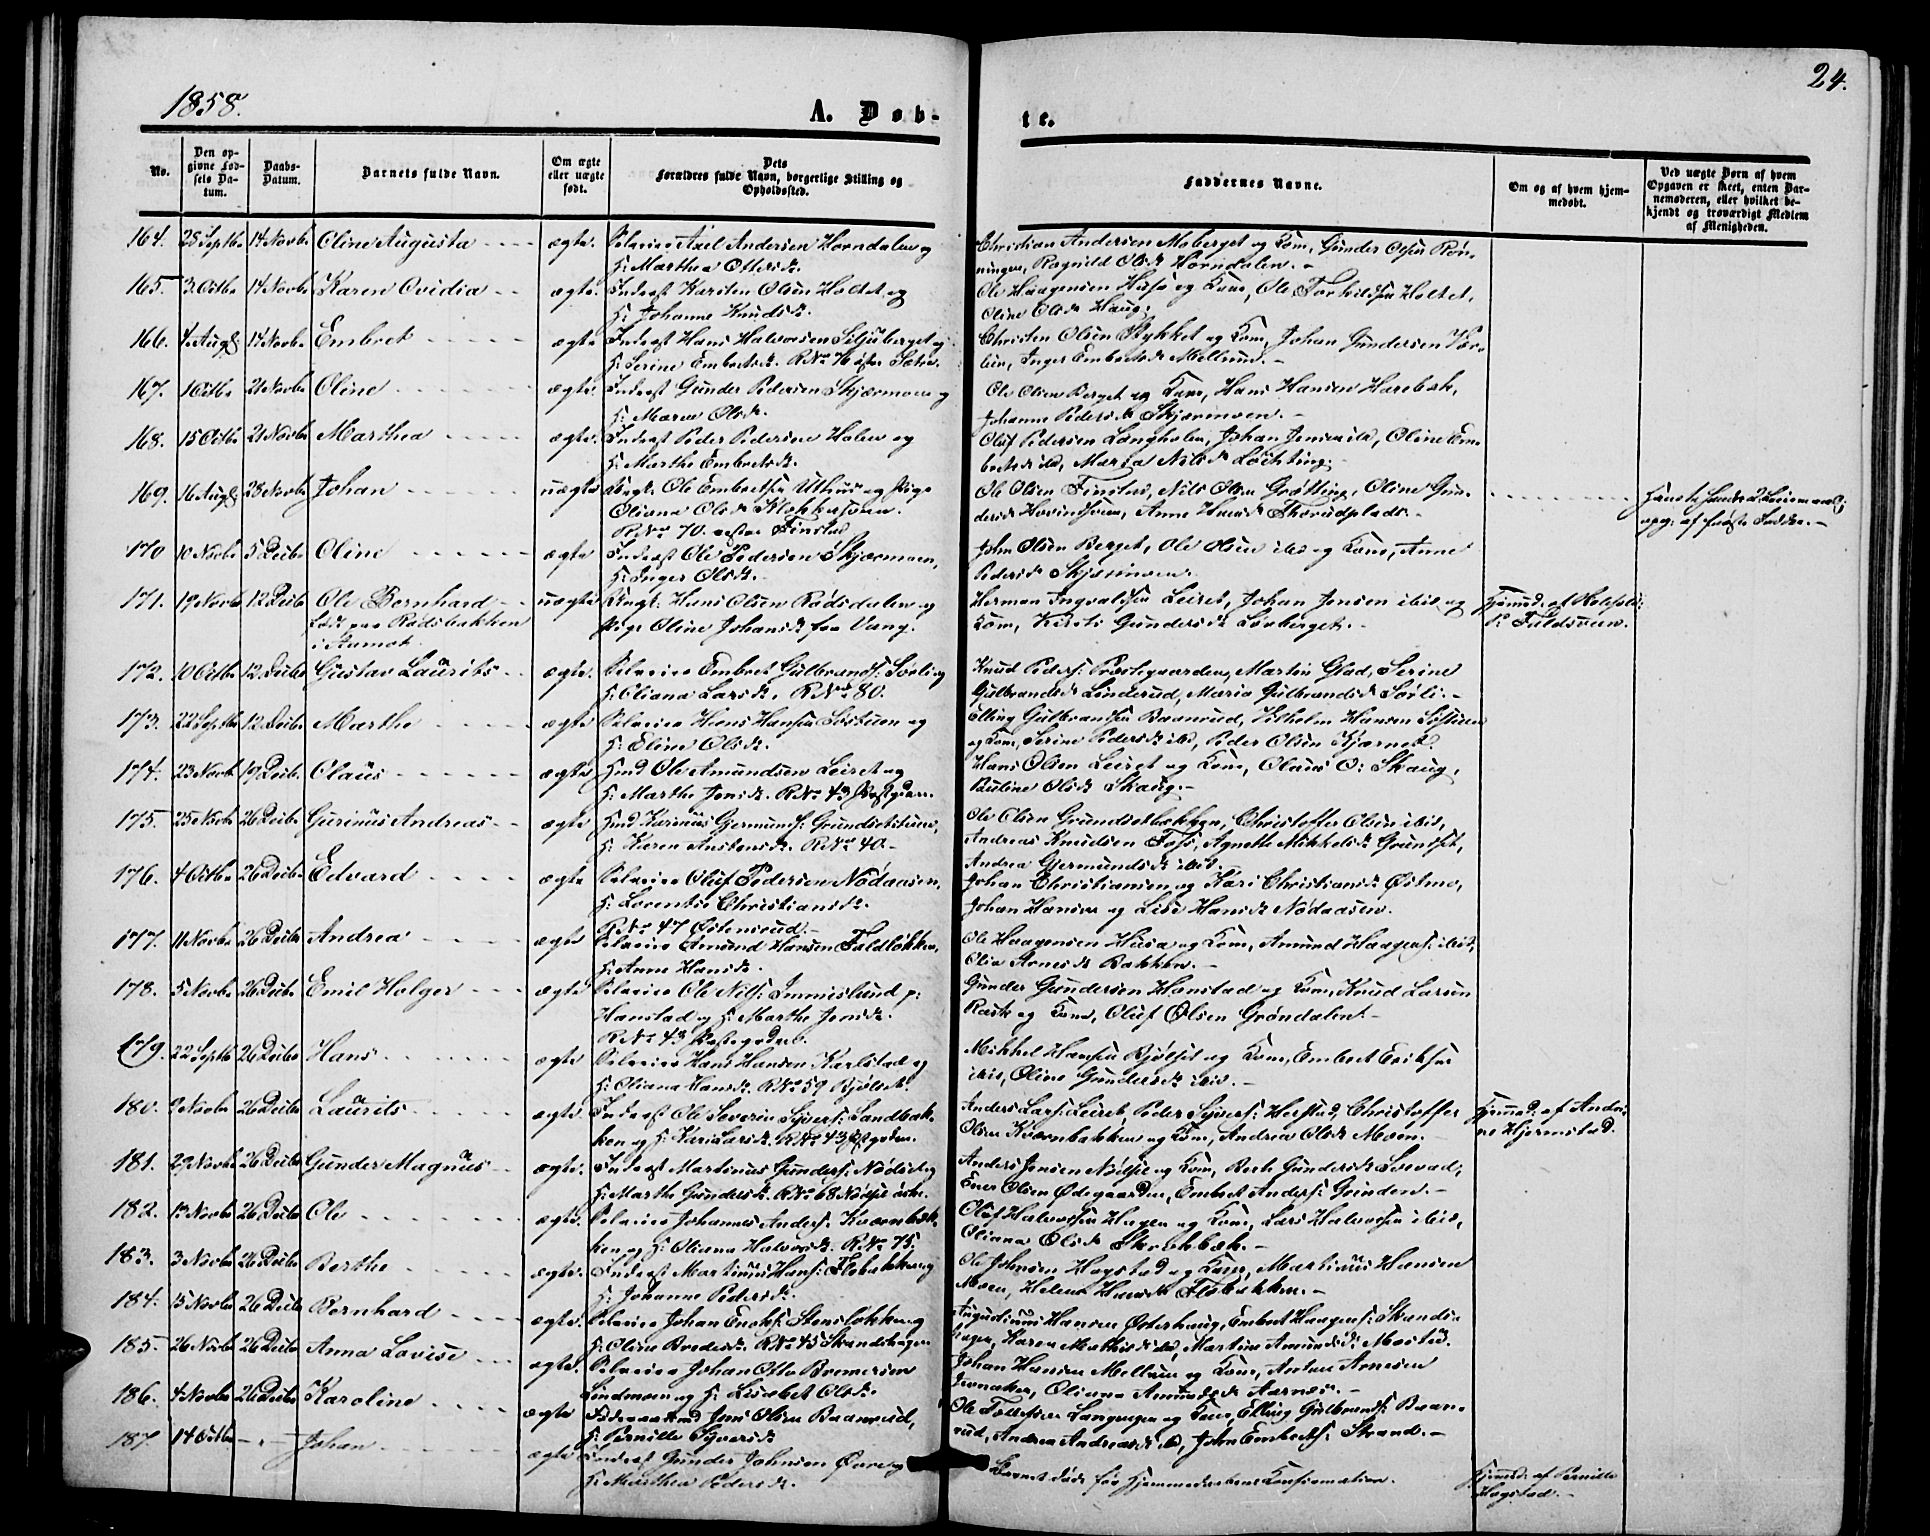 1858.
A. Døb-
te.
24.
No.
Den op-
givne Fød-
sels Da-
tum.
Daabs-
Datum.
Barnets fulde Navn.
Om ægte
eller uægte
født.
Dets
Forældres fulde Navn, borgerlige Stilling og
Opholdssted.
Faddernes Navne.
Om og af hvem hjem-
medøbt.
Ved uægte Børn af hvem
Opgaven er skeet, enten Bar-
nemoderen, eller hvilket be-
kjendt og troværdigt Medlem
af Menigheden.
164. 28 Septbr 14 Novbr Oline Augusta ægte Axel Andersen Horndalen og
H: Marthea Ottersd.
Christian Andersen Moberget og Kone, Gunder Olsen Røn-
ningen, Ragnild Olsd. Horndalen.
165. 3 Octbr 14 Novbr Karen Ovidia ægte Inderst Karsten Olsen Holtet og
H: Johanne Knudsd.
Ole Haagensen Husa og Kone, Ole Torkildsen Holtet,
Oline Olsd. Haug.
166. 4 Aug 14 Novbr Embret ægte Inderst Hans Halvorsen Siljuberget og
H: Serine Embretsd. RNo 76 Sætre.
Christen Olsen Stykket og Kone, Johan Gundersen
Inger Embretsd. Mellerud.
167. 1 Octbr 21 Novbr Oline ægte Inderst Gunder Pedersen Skjærmoen og
H: Maren Olsd.
Ole Olsen Berget og Kone, Hans Hansen Harebæk,
Johanne Pedersd. Skjærmoen.
168. 15 Octbr 21 Novbr Marthea ægte Inderst Peder Pedersen Holen og
H: Marthe Embretsd.
Oluf Pedersen Langholen, Johan Jensen ibid, Oline Em-
bretsd. ibid, Maria Nilsd. Løchting.
169. 16 Aug 28 Novbr Johan uægte Ungk: Ole Embretsen Uthus og Pige
Oliana Olsd.
RNo 70. Finstad
Ole Olsen Finstad, Nils Olsen Grøtting, Oline Gun-
dersd. Anne Hansd. Thorudplads.
170 10 Novbr 5 Decbr Oline ægte Inderst Ole Pedersen Skjærmoen,
H: Inger Olsd.
John Olsen Berget, Ole Olsen ibid og Kone, Anne
Pedersd. Skjærmoen.
171. 19 Novbr 12 Decbr Ole Bernhard uægte Ungk: Hans Olsen Rødsdalen og
født paa Rødsbakken
Pige Oline Johansd. fra Vang.
Herman Ingvaldsen Leiret, Johan Jensen ibid og
Kone, Kirsti Gundersd. Løvberget.
172. 10 Octbr 12 Decbr Gustav Laurits ægte Embret Gulbrands: Sørli og
H: Oliana Larsd. RNo 80.
Knud Peders: Præstgaarden, Martin Glad, Serine
Gulbrandsd. Linderud, Maria Gulbrandsd. Sørli.
173. 22 Septbr 12 Decbr Marthe ægte Hans Hansen og
H: Eline Olsd.
Elling Gulbrandsen Baanrud, Vilhelm Hansen
og Kone, Serine Pedersd. ibid, Peder Olsen Kjærnet.
174. 23 Novbr 19 Decbr Claus ægte Ole Amundsen Leiret og
H: Marthe Jensd. RNo 43
Hans Olsen Leiret og Kone, Olaus O: Skaug,
Pauline Olsd. Skaug.
175. 25 Novbr 26 Decbr Gurinus Andreas ægte Karinus Gjermunds: Grundsetstuen,
H: Karen RNo 40.
Ole Olsen Grundsetbakken, Christoffer Olsen ibid,
Andreas Knudsen Foss, Agnethe Mikkelsd. Grundset,
Andrea Gjermundsd. ibid.
176. 4 Octbr 26 Decbr Edvard ægte Oluf Pedersen Nødaasen,
H: Lorentse Christiansd.
RNo 47 Østensrud.
Johan Christiansen og Kari Christiansd. Østmo,
Johan Hansen og Lise Hansd. Nødaasen.
177. 11 Novbr 26 Decbr Andrea ægte Amund Hansen Fuldløkken,
H: Anne Hansd.
Ole Haagensen Husa og Kone, Amund Haagens: ibid,
Olia Arnesd. Bakken.
178. 5 Novbr 26 Decbr Emil Holger ægte Ole Nils: Immislund p:
Hanstad og H: Marthe Jensd.
RNo 43
Gunder Gundersen Hanstad og Kone, Knud Larsen
Rask og Kone, Oluf Olsen Grøndalen.
179. 22 Septbr 26 Decbr Hans ægte Hans Hansen Karlstad og
H: Oliana Hansd. RNo 59 Bjølset.
Mikkel Hansen Bjølset og Kone, Embret Eriksen
ibid, Oline Gundersd. ibid.
180. 9 Novbr 26 Decbr Laurits ægte Inderst Ole Severin Syvers: Sandbak-
ken og H: Kari Larsd. RNo 43
Anders Lars: Leiret, Peder Syvers: Herstad, Christoffer
Olsen Kværnbakken og Kone, Andrea Olsd. Moen.
Hjemmed: af Andri-
ne Hjermstad.
181. 29 Novbr 26 Decbr Gunder Magnus ægte Inderst Martinus Gunders: Nødset og
H: Marthe Gundersd. RNo 68 Nødset
Anders Jensen Nødset og Kone, Berth Gundersd.
Ener Olsen Ødegaarden, Embret Anders: Grinden.
182. 13 Novbr 26 Decbr Ole ægte Johannes Anders: Kværnbak-
ken og H: Oliana Halvorsd. RNo 75.
Oluf Halvorsen Hagen og Kone, Lars Halvorsen ibid,
Oliana Olsd.
183. 3 Novbr 26 Decbr Berthe ægte Inderst Martinus Hans: Flobakken og
H: Johanne Pedersd.
Ole Johnsen Hagstad og Kone, Martinus Hansen
Moen, Helene Hansd. Flobakken.
184. 15 Novbr 26 Decbr Bernhard ægte Johan Enoks: Stensløkken og
H: Oline RNo 45 Strandshagen
Augustinus Hansen Østerhaug, Embret Haagens: Strands-
hagen, Karen Mathisd. ibid, Martine Amundsd. Mostad.
185. 26 Novbr 26 Decbr Anna Lovise ægte Johan Otto
Lindmoen og H: Lisabet Olsd.
Johan Hansen Mellum og Kone, Anton Arnesen
Oliana Amundsd. Aarnæs.
186. 4 Novbr 26 Decbr Karoline ægte Jens Olsen Baanrud,
H: Pernille Syversd.
Ole Tollefsen Langengen og Kone, Elling Gulbrands: Baan-
rud, Andrea Andreasd. ibid, John Embrets: Strand.
187. 14 Octbr Johan ægte Inderst Gunder Johnsen og
H: Marthea Pedersd.
Barnet døde før Hjemmedaabens Confirmation.
Hjemmed: af Pernille
Hagstad.